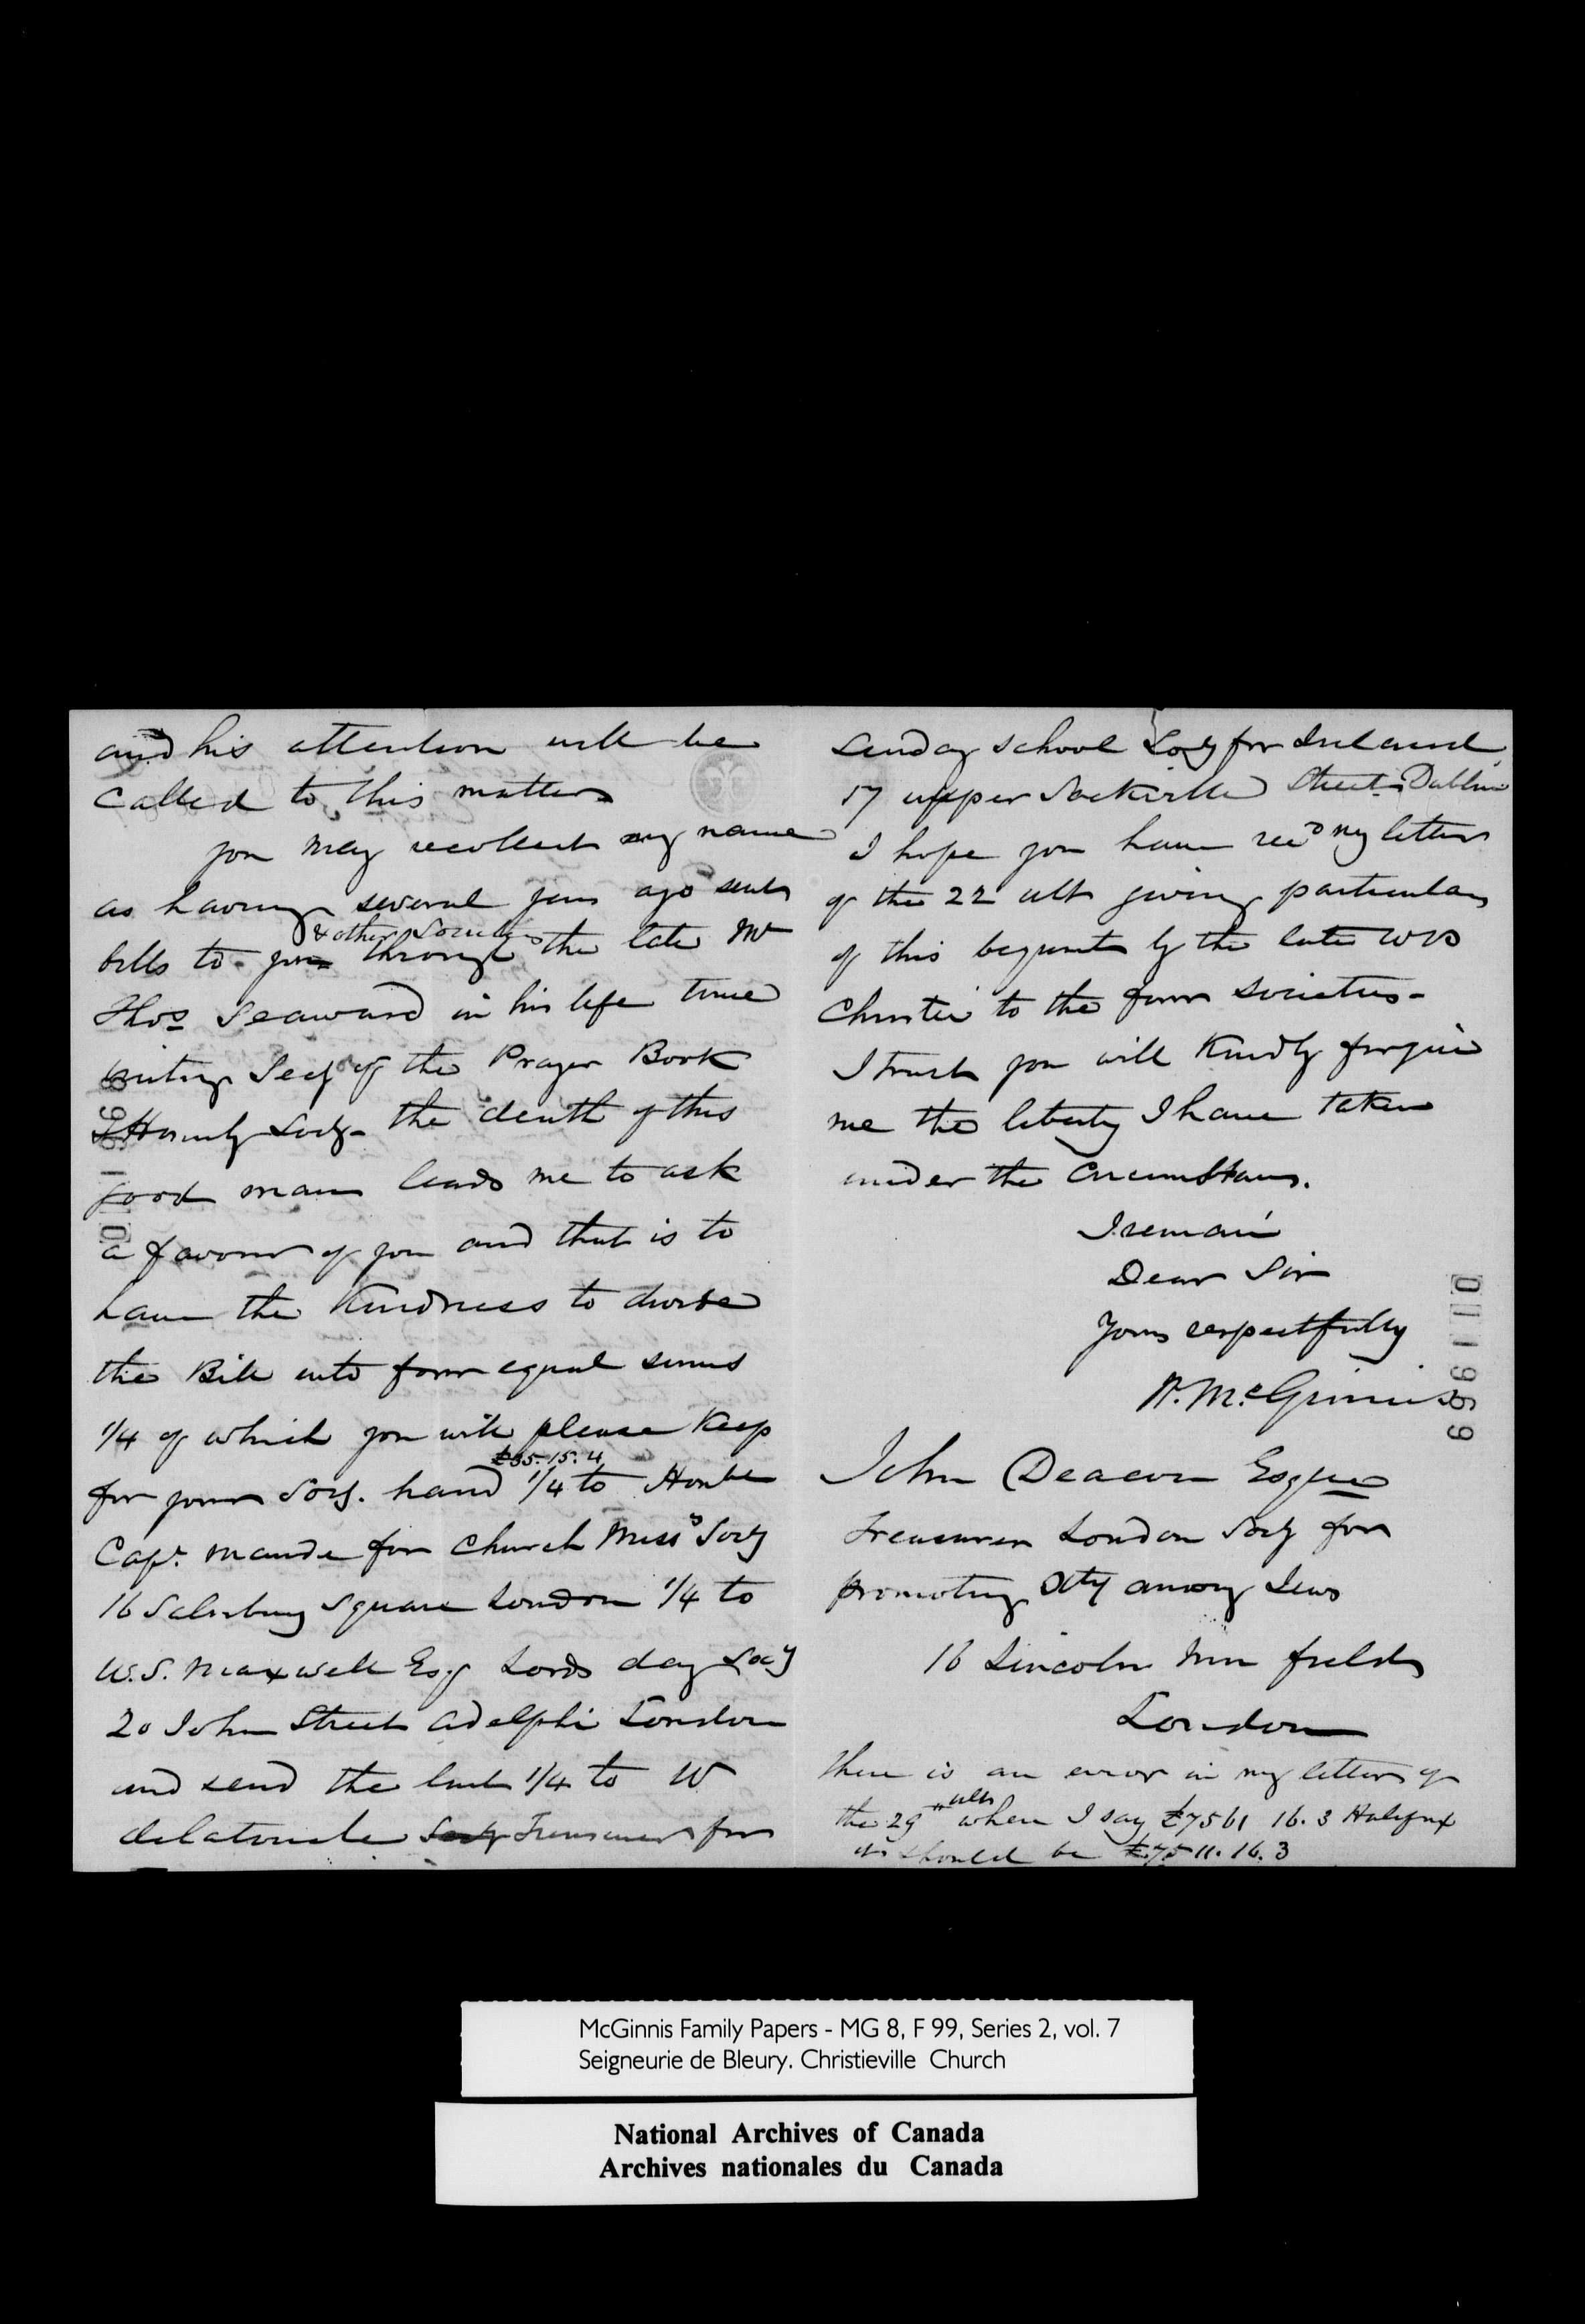 and his attention will be
called to this matter
you may recollect my name
as having several years ago sent
& other Societies
bills to you through the late Mr
Thos Seaward in his life time
Secy of the Prayer Book
& Homily Socy - the death of this
good man leads me to ask
a favour of you and that is to
have the Kindness to divide
the Bill into four equal sums
1/4 of which you will please Keep
£35.15.4
for your Socy. hand 1/4 to Honble
Capt. Maude for Church Missy Socy
16 Salisbury Square London 1/4 to
W.S. Maxwell Esq Lords day Socy
20 John Street Adelphi London
and send the last 1/4 to W
delatouche Socy Treasurer for
Sunday School Socy for Ireland
17 upper Sackville Street Dublin
I hope you have recd my letter
of the 22 ult giving particulars
of this bequest by the late W
Christie to the four societies -
I trust you will Kindly forgive
me the liberty I have taken
under the circumstances.
I remain
Dear Sir
Yours respectfully
W. McGinnis
John Deacon Esqre
Treasurer London Socy for
promoting Xty among Jews
16 Lincoln Inn fields
London
there is an error in my letter of
ult
the 29 when I say £7561 16.3 Halifax
it should be £7511.16.3
011968
011969
McGinnis Family Papers - MG 8, F 99, Series 2, vol. 7
Seigneurie de Bleury. Christieville Church
National Archives of Canada
Archives nationales du Canada